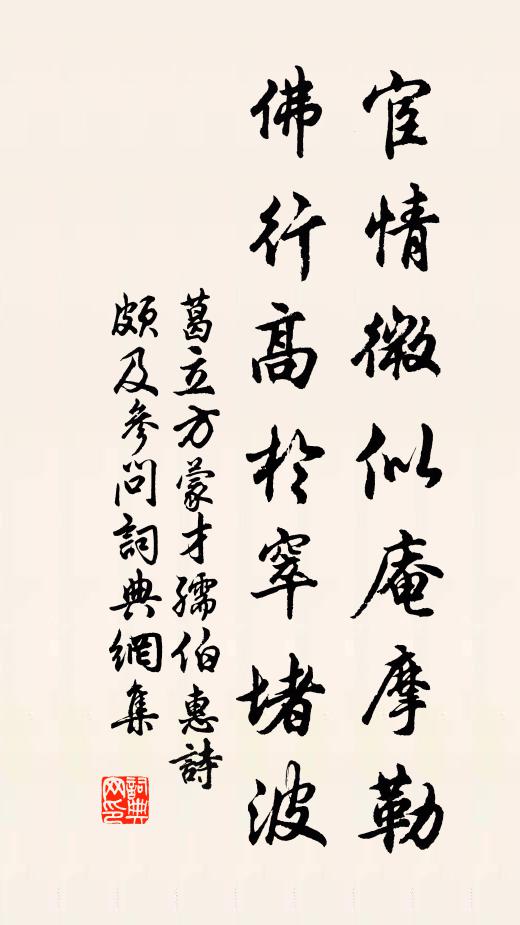 宦情微似庵摩勒
佛行高於窣堵波
葛立方蒙才孺伯惠詩
頗及參問詞典網集
詞典網印